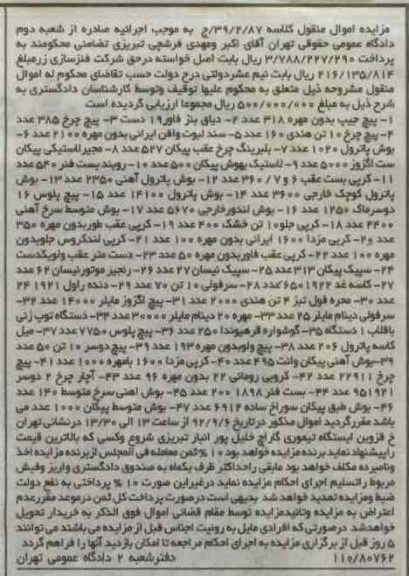 مزایده اموال منقول کلاسه ۳۹/۲/۸۷/ج به موجب اجرائیه صادره از شعبه دوم
دادگاه عمومی حقوقی تهران آقای اکبر ومهدی فرشچی تبریزی تضامنی محکومند به
پرداخت ۳/۷۸۸/۲۲۷/۲۹۰ ریال بابت اصل خواسته درحق شرکت فنرسازی زرمبلغ
۲۱۶/۱۳۵/۸۱۴ ریال بابت نیم عشردولتی درح دولت حسب تقاضای محکوم له اموال
منقول مشروحه ذیل متعلق به محکوم علیها توقیف وتوسط کارشناسان دادگستری به
شرح ذیل به مبلغ ۵۰۰/۰۰۰/۰۰۰ ریال مجموعا ارزیابی گردیده است
۱- پیچ جیپ بدون مهره ۳۱۸ عدد ۲- دیاق بنز فاور۱۹ دست ۳- پیچ چرخ ۳۸۵ عدد
۴- پیچ چرخ ۱۰ تن هندی ۱۶۰ عدد ۵- سند لبوت واقن ایرانی بدون مهره ۲۱۰۰ ۶-
بوش پاترول ۱۰۲۰ عدد ۷- بلبرینگ چرخ عقب پیکان ۵۲۷ عدد ۸- مجیرلاستیکی پیکان
ست اگزوز ۵۰۰۰ عدد ۹- لاستیک بهوش پیکان ۵۰۰ عدد ۱۰- روبند بست فنر ۵۴۰ عدد
۱۱- کرپی بست عقب ۶ و ۷ / ۳۶۰ عدد ۱۲- بوش پاترول آهنی ۲۳۵۰ عدد ۱۳- بوش
پاترول کوچک خارجی ۳۶۰۰ عدد ۱۴- بوش پاترول ۱۴۱۰۰ عدد ۱۵- پیچ پلوس ۱۶
دوسرماک ۱۲۵۰ عدد ۱۶- بوش لندورخارجی ۵۶۷۰ عدد ۱۷- بوش متوسط سرخ آهنی
۴۴۰۰ عدد ۱۸- کرپی جلو۱۰ تن خشک ۴۰۰ عدد ۱۹- کرپی عقب طوربدون مهره ۳۵۰
عدد و۲- کرپی مزدا ۱۶۰۰ ایرانی بدون مهره ۱۰۰ عدد ۲۱- کرپی لندکروس جلوبدون
مهره ۱۰۰ عدد ۲۲- کرپی عقب فاوربدون مهره ۵۰ عدد ۲۳- دست متر عقب ولویکدست
۲۴- سپیک پیکان ۳۱۳ عدد ۲۵- سپیک نیسان ۲۷ عدد ۲۶- رنجیر موتورنیسان ۶۲ عدد
۲۷- کاسه غد ۶۵۰۱۹۲۲عدد ۲۸- سرفولی ۱۰ تن ۷۰ عدد ۲۹- دنده راول ۱۹۲۱ ۲۴
عدد ۳۰- مجره قول تیز ۴ تن هندی ۲۰۰۰ عدد ۳۱- پیچ اگزوز مایلر ۱۴۰۰۰ عدد ۳۲-
سرفولی دینام مایلر ۲۵ عدد ۳۳- مهره ۲۰ دینام مایلر ۳۰۰۰۰عدد ۳۴- دستگاه توپ زنی
باقلاب ۱ دستگاه ۳۵- گوشواره فرهیوندا ۲۵۰ عدد ۳۶- پیچ پلوس ۷۷۵۰ عدد ۳۷- میل
کاسه پاترول ۲۰۶ عدد ۳۸- پیچ ولوبدون مهره۱۹۳ عدد ۳۹- پیچ دوسر ۱۰ تن ۵۰ عدد
۳۹-بوش آهنی پیکان وانت ۴۹۵ عدد ۴۰- کرپی مزدا ۱۶۰۰ بامهره ۱۰۰۰ عدد ۴۱- پیچ
چرخ ۲۲۹۱۱ عدد ۴۲- کرپی رومانی ۲۲ بدون مهره ۹۶ عدد ۴۳- آچار چرخ ۲ دوسر
۹۵۱۹۲۱ عدد ۴۴- بست فنر ۱۸۹۸ ۲۰۰ عدد ۴۵- بوش اهنی سرخ متوسط ۱۴۰ عدد
۴۶- بوش طبق پیکان سوراخ ساده ۶۹۱۲ عدد ۴۷- بوش متوسط پیکان ۱۰۰۰ عدد می
باشد مقررگردید اموال مذکور درتاریخ ۹۲/۹/۶ از ساعت ۱۳ الی ۱۳/۳۰ درنشانی تهران
خ قزوین ایستگاه تیموری گاراج خلیل پور انبار تبریزی شروع وکسی که بالاترین قیمت
راپیشنهاد نماید برنده مزایده خواهد بود ۱۰ % ثمن معامله فی المجلس ازبرنده مزایده اخذ
ونامبرده مکلف خواهد بود مابقی راحداکثر ظرف یکماه به صندوق دادگستری واریز وفیش
مربوط راتسلیم اجرای احکام مزایده نماید درغیراین صورت ۱۰ % پرداختی به نفع دولت
ضبط ومزایده تمدید خواهد شد بدیهی است درصورت پرداخت کل ثمن درموعد مقررعدم
اعتراض به مزایده وتائیدمزایده توسط مقام قضائی اموال فوق الذکر به خریدار تحویل
خواهدشد درصورتی که افرادی مایل به رونیت اجناس قبل از مزایده می باشند می توانند
۵ روز قبل از برگزاری مزایده به اجرای احکام مراجعه تا امکان بازدید آنها را فراهم گردد
۱۱۰/۸۰۷۶۲ دفترشعبه ۲ دادگاه عمومی تهران